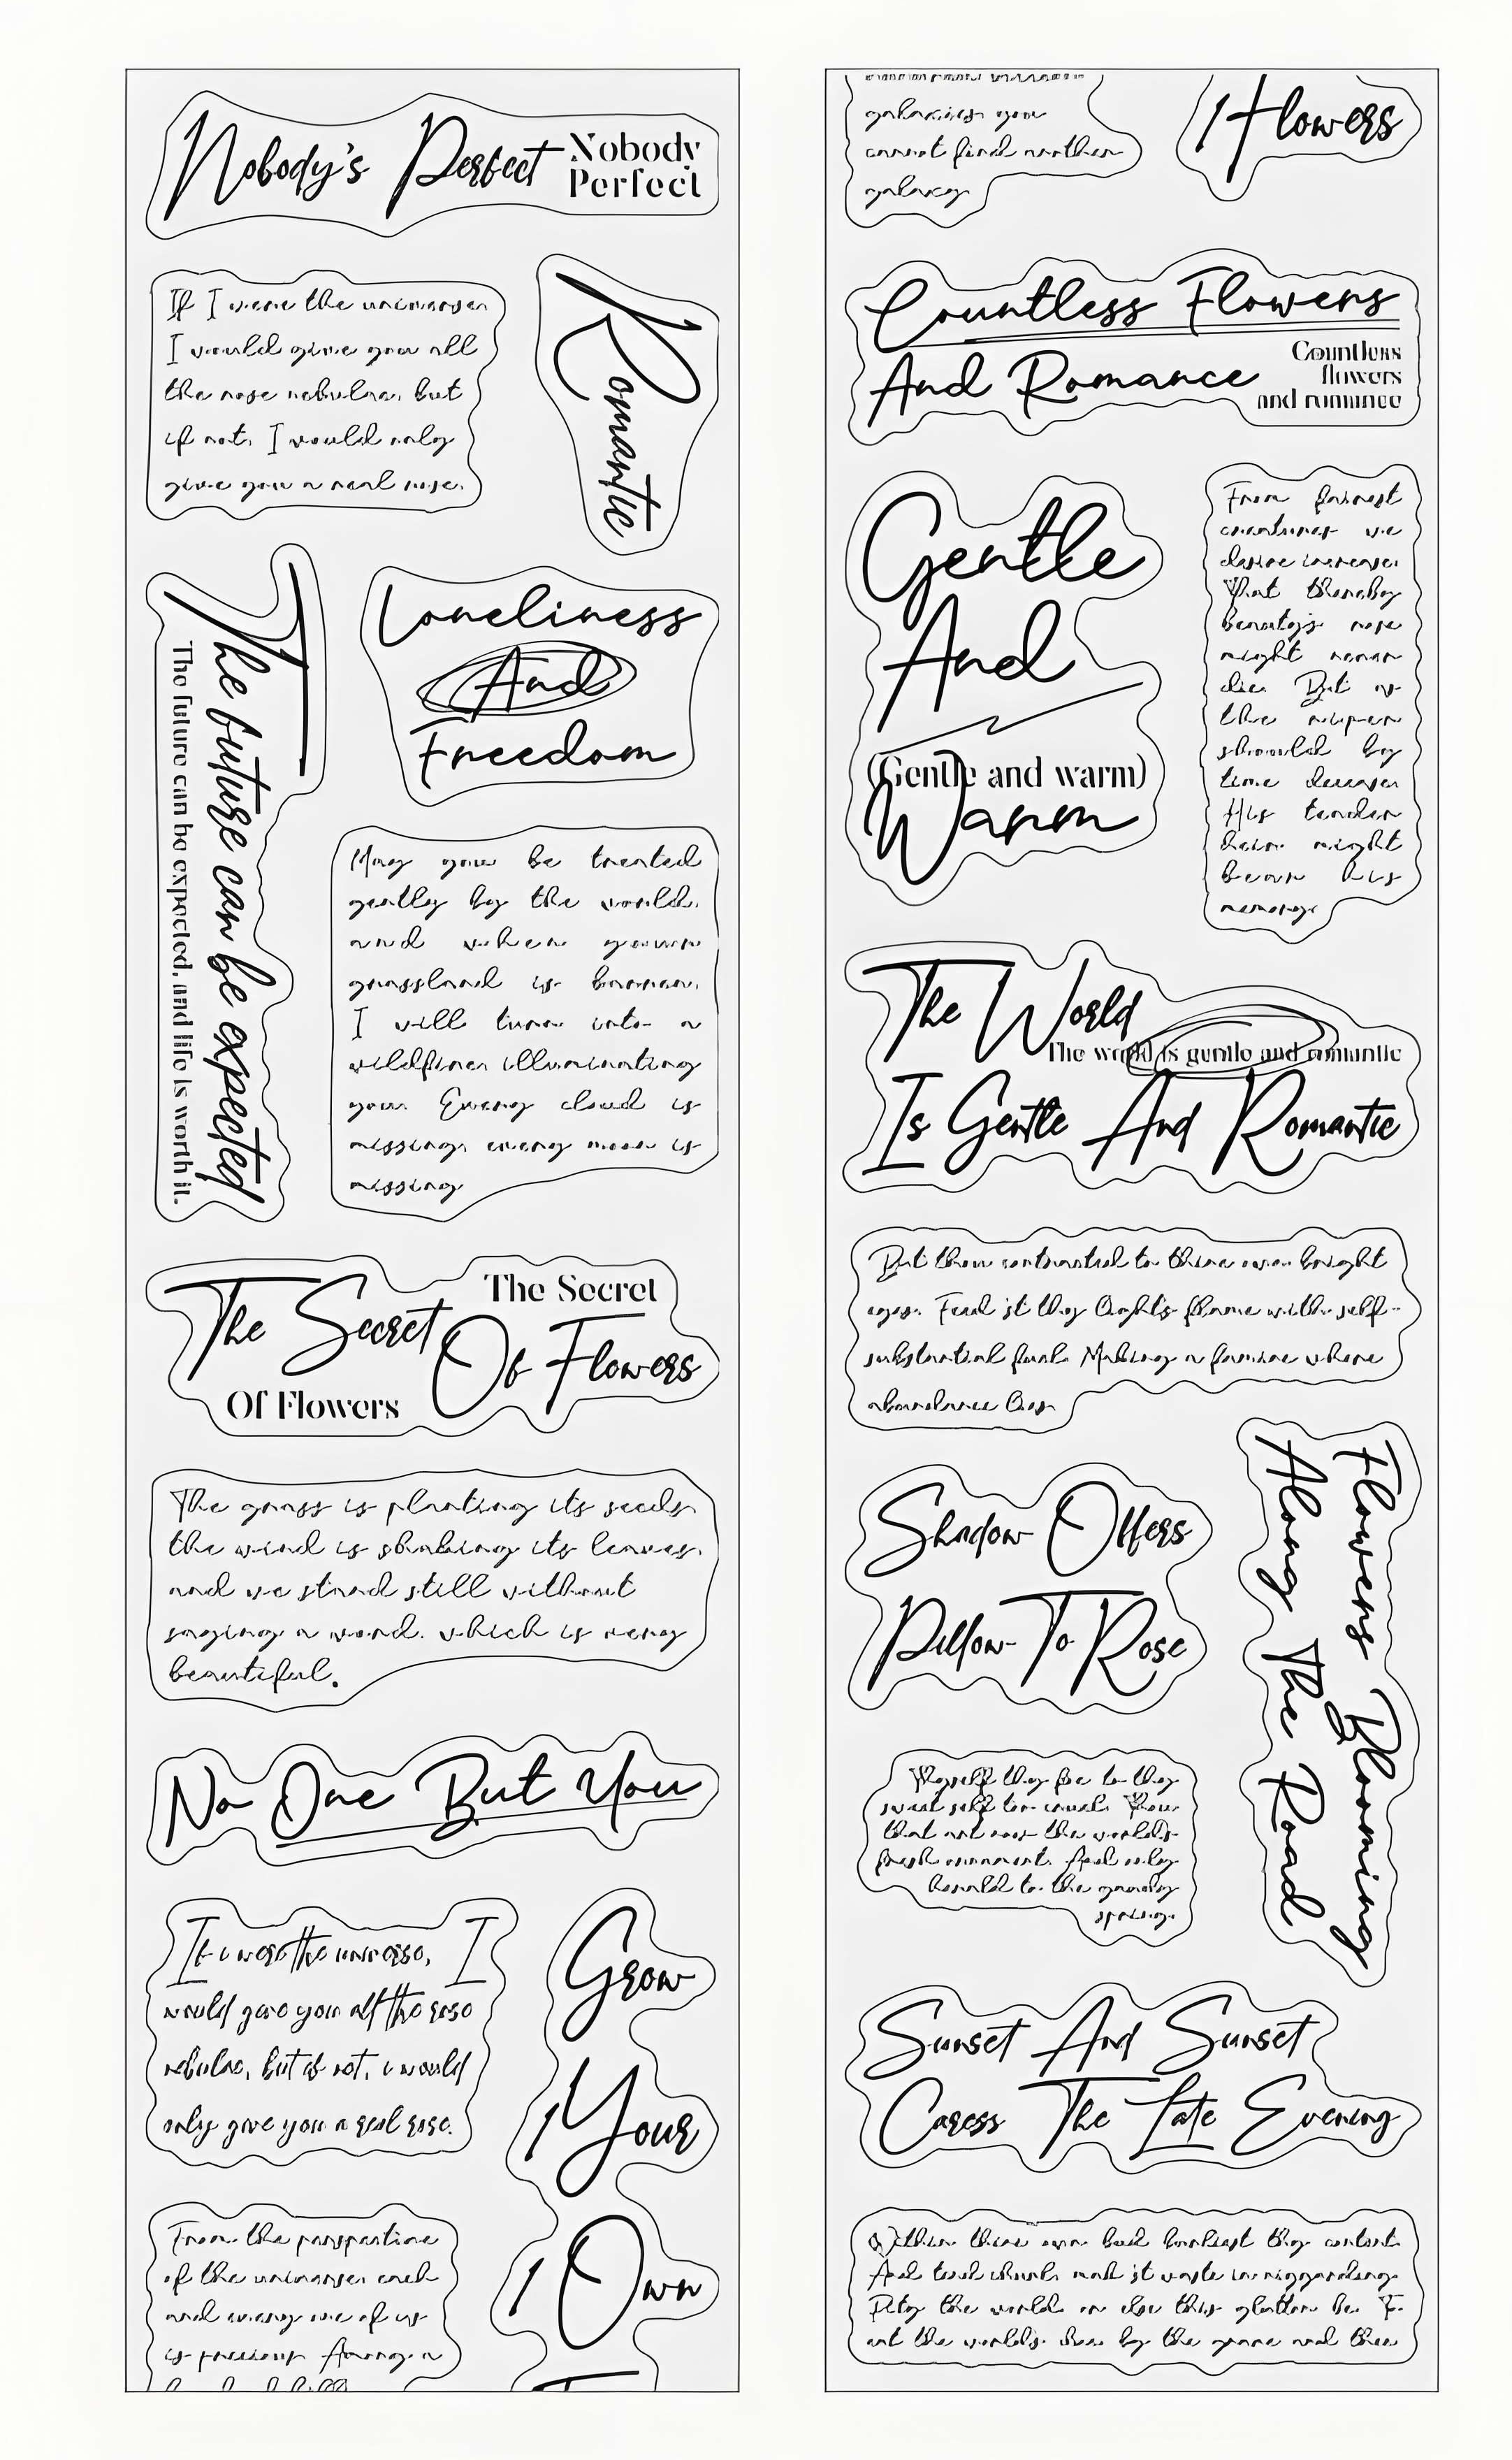 Nobody's Perfect
Nobody
Perfect
If I were the universe
I would give you all
the rose nebulae, but
if not, I would only
give you a real rose.
Romantic
The future can be expected
The future can be expected, and life is worth it.
Loneliness
And
Freedom
May you be treated
gently by the world,
and when your
grassland is barren,
I will turn into a
wildfire illuminating
your Every cloud is
missing, every moon is
missing
The Secret
The Secret
Of Flowers
Of Flowers
The grass is planting its seeds,
the wind is shaking its leaves,
and we stand still without
saying a word. which is very
beautiful.
No One But You
If i were the universe, I
would give you all the rose
nebulae, but if not, i would
only give you a real rose.
Grow
Your
Own
From the perspective
of the universe, each
and every one of us
is precious Among a
galaxies you
cannot find another
galaxy
Flowers
Countless Flowers
And Romance
Countless
flowers
and romance
Gentle
And
(Gentle and warm)
Warm
From fairest
creatures we
desire increase,
That thereby
beauty's rose
might never
die. But as
the riper
should by
time decease
His tender
heir might
bear his
memory
The World
The world is gentle and romantic
Is Gentle And Romantic
But thou contracted to thine own bright
eyes. Feed'st thy light's flame with self-
substantial fuel. Making a famine where
abundance lies
Shadow Offers
Pillow To Rose
Flowers Blooming
Along The Road
Thyself thy foe to thy
sweet self too cruel. Thou
that art now the world's
fresh ornament. And only
herald to the gaudy
spring.
Sunset And Sunset
Caress The Late Evening
Within thine own bud buriest thy content
And tend churl, mak'st waste in niggarding.
Pity the world, or else this glutton be. To
eat the world's due, by the grave and thee